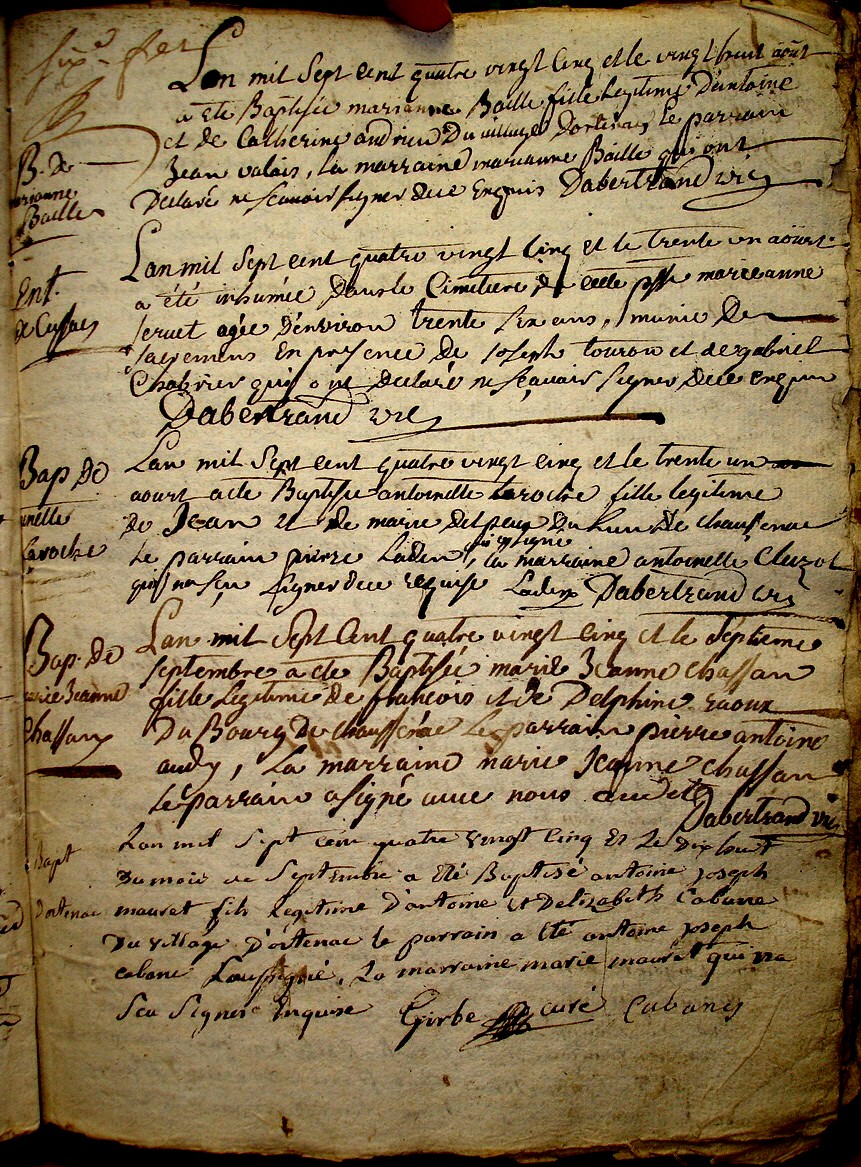 six.e feu
Lan mil Sept cent quatre vingt Cinq et le vingt huit aout
a ete Baptisée marianne Baille fille Legitime D'antoine
et de Catherine andrieu Du village Dortenac, Le parrain
B. de
Jean valais, La marraine marianne Baille qui ont
marianne
Declaré ne Scavoir signer de ce Enquis Dabertrand vic
Baille
Lan mil Sept cent quatre vingt Cinq et le trente un aoust
Ent.
a été inhumée Dans le Cimitiere de cette psse marieanne
de Cussac
servet agée D'environ trente six ans, munie De
sacremens En presence De Joseph touron et de gabriel
Chabrier qui ont declaré ne sçavoir signer De ce enquis
Dabertrand vic
Bap De
Lan mil Sept cent quatre vingt cinq et le trente un
aoust a ete Baptisée antoinette Laroche fille legitime
Laroche
de Jean et de marie delpeux Du lieu de chaussenac
qui a signé
Le parrain pierre Laden, La marraine antoinette Cluzel
qui na sçu signer de ce requise Laden Dabertrand vic
Bap. De
Lan mil Sept Cent quatre vingt Cinq et le Septieme
Septembre a ete Baptisée marie Jeanne chassan
marie Jeanne
fille Legitime De francois et de Delphine raoux
Chassan
Du Bourg De chaussenac Le parrain pierre antoine
audy, La marraine marie Jeanne chassan
Le parrain a signé avec nous audy
Dabertrand vic
Lan mil Sept cent quatre vingt Cinq Et Le Dix huit
Bapt
Du mois de Septembre a été Baptisé antoine joseph
Dortenac
mauret fils Legitime D'antoine et Delizabeth Cabane
Du village D'ortenac le parrain a été antoine joseph
cabane Soussigné, La marraine marie mauret qui na
Sçu Signer Enquise Girbe curé Cabanes